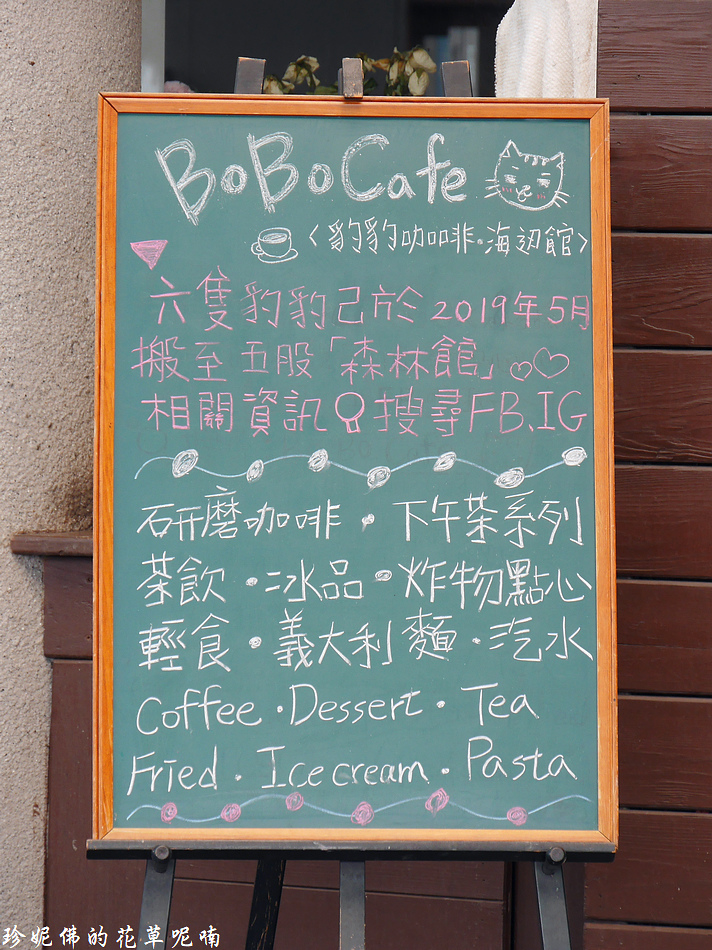 BoBo Cafe
〈豹豹咖啡·海辺館〉
六隻豹豹已於2019年5月
搬至五股「森林館」
相關資訊 搜尋FB、IG
研磨咖啡·下午茶系列
茶飲·冰品·炸物點心
輕食·義大利麵·汽水
Coffee·Dessert·Tea
Fried·Ice cream·Pasta
珍妮佛的花草呢喃